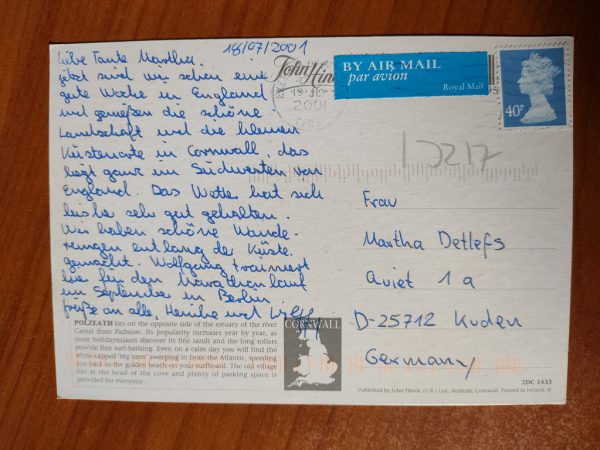 18/07/2001
Liebe Tante Martha,
jetzt sind wir schon eine
gute Woche in England
und genießen die schöne
Landschaft und die kleinen
Küstenorte in Cornwall, das
liegt ganz im Südwesten von
England. Das Wetter hat sich
bisher sehr gut gehalten.
Wir haben schöne Wande-
rungen entlang der Küste
gemacht. Wolfgang trainiert
hier für den Marathonlauf
im September in Berlin.
Grüße an alle, Henrike und Wolff
John Hinde
BY AIR MAIL
par avion
Royal Mail
2001
40P
Frau
Martha Detlefs
Quiet 1 a
D-25712 Kuden
Germany
POLZEATH lies on the opposite side of the estuary of the river
Camel from Padstow. Its popularity increases year by year, as
more holidaymakers discover its fine sands and the long rollers
provide fine surf-bathing. Even on a calm day you will find the
white-capped 'big ones' sweeping in from the Atlantic, speeding
you back to the golden beach on your surfboard. The old village
lies at the head of the cove and plenty of parking space is
provided for everyone.
CORNWALL
2DC 1533
Published by John Hinde (U.K.) Ltd., Redruth, Cornwall. Printed in Ireland. ©